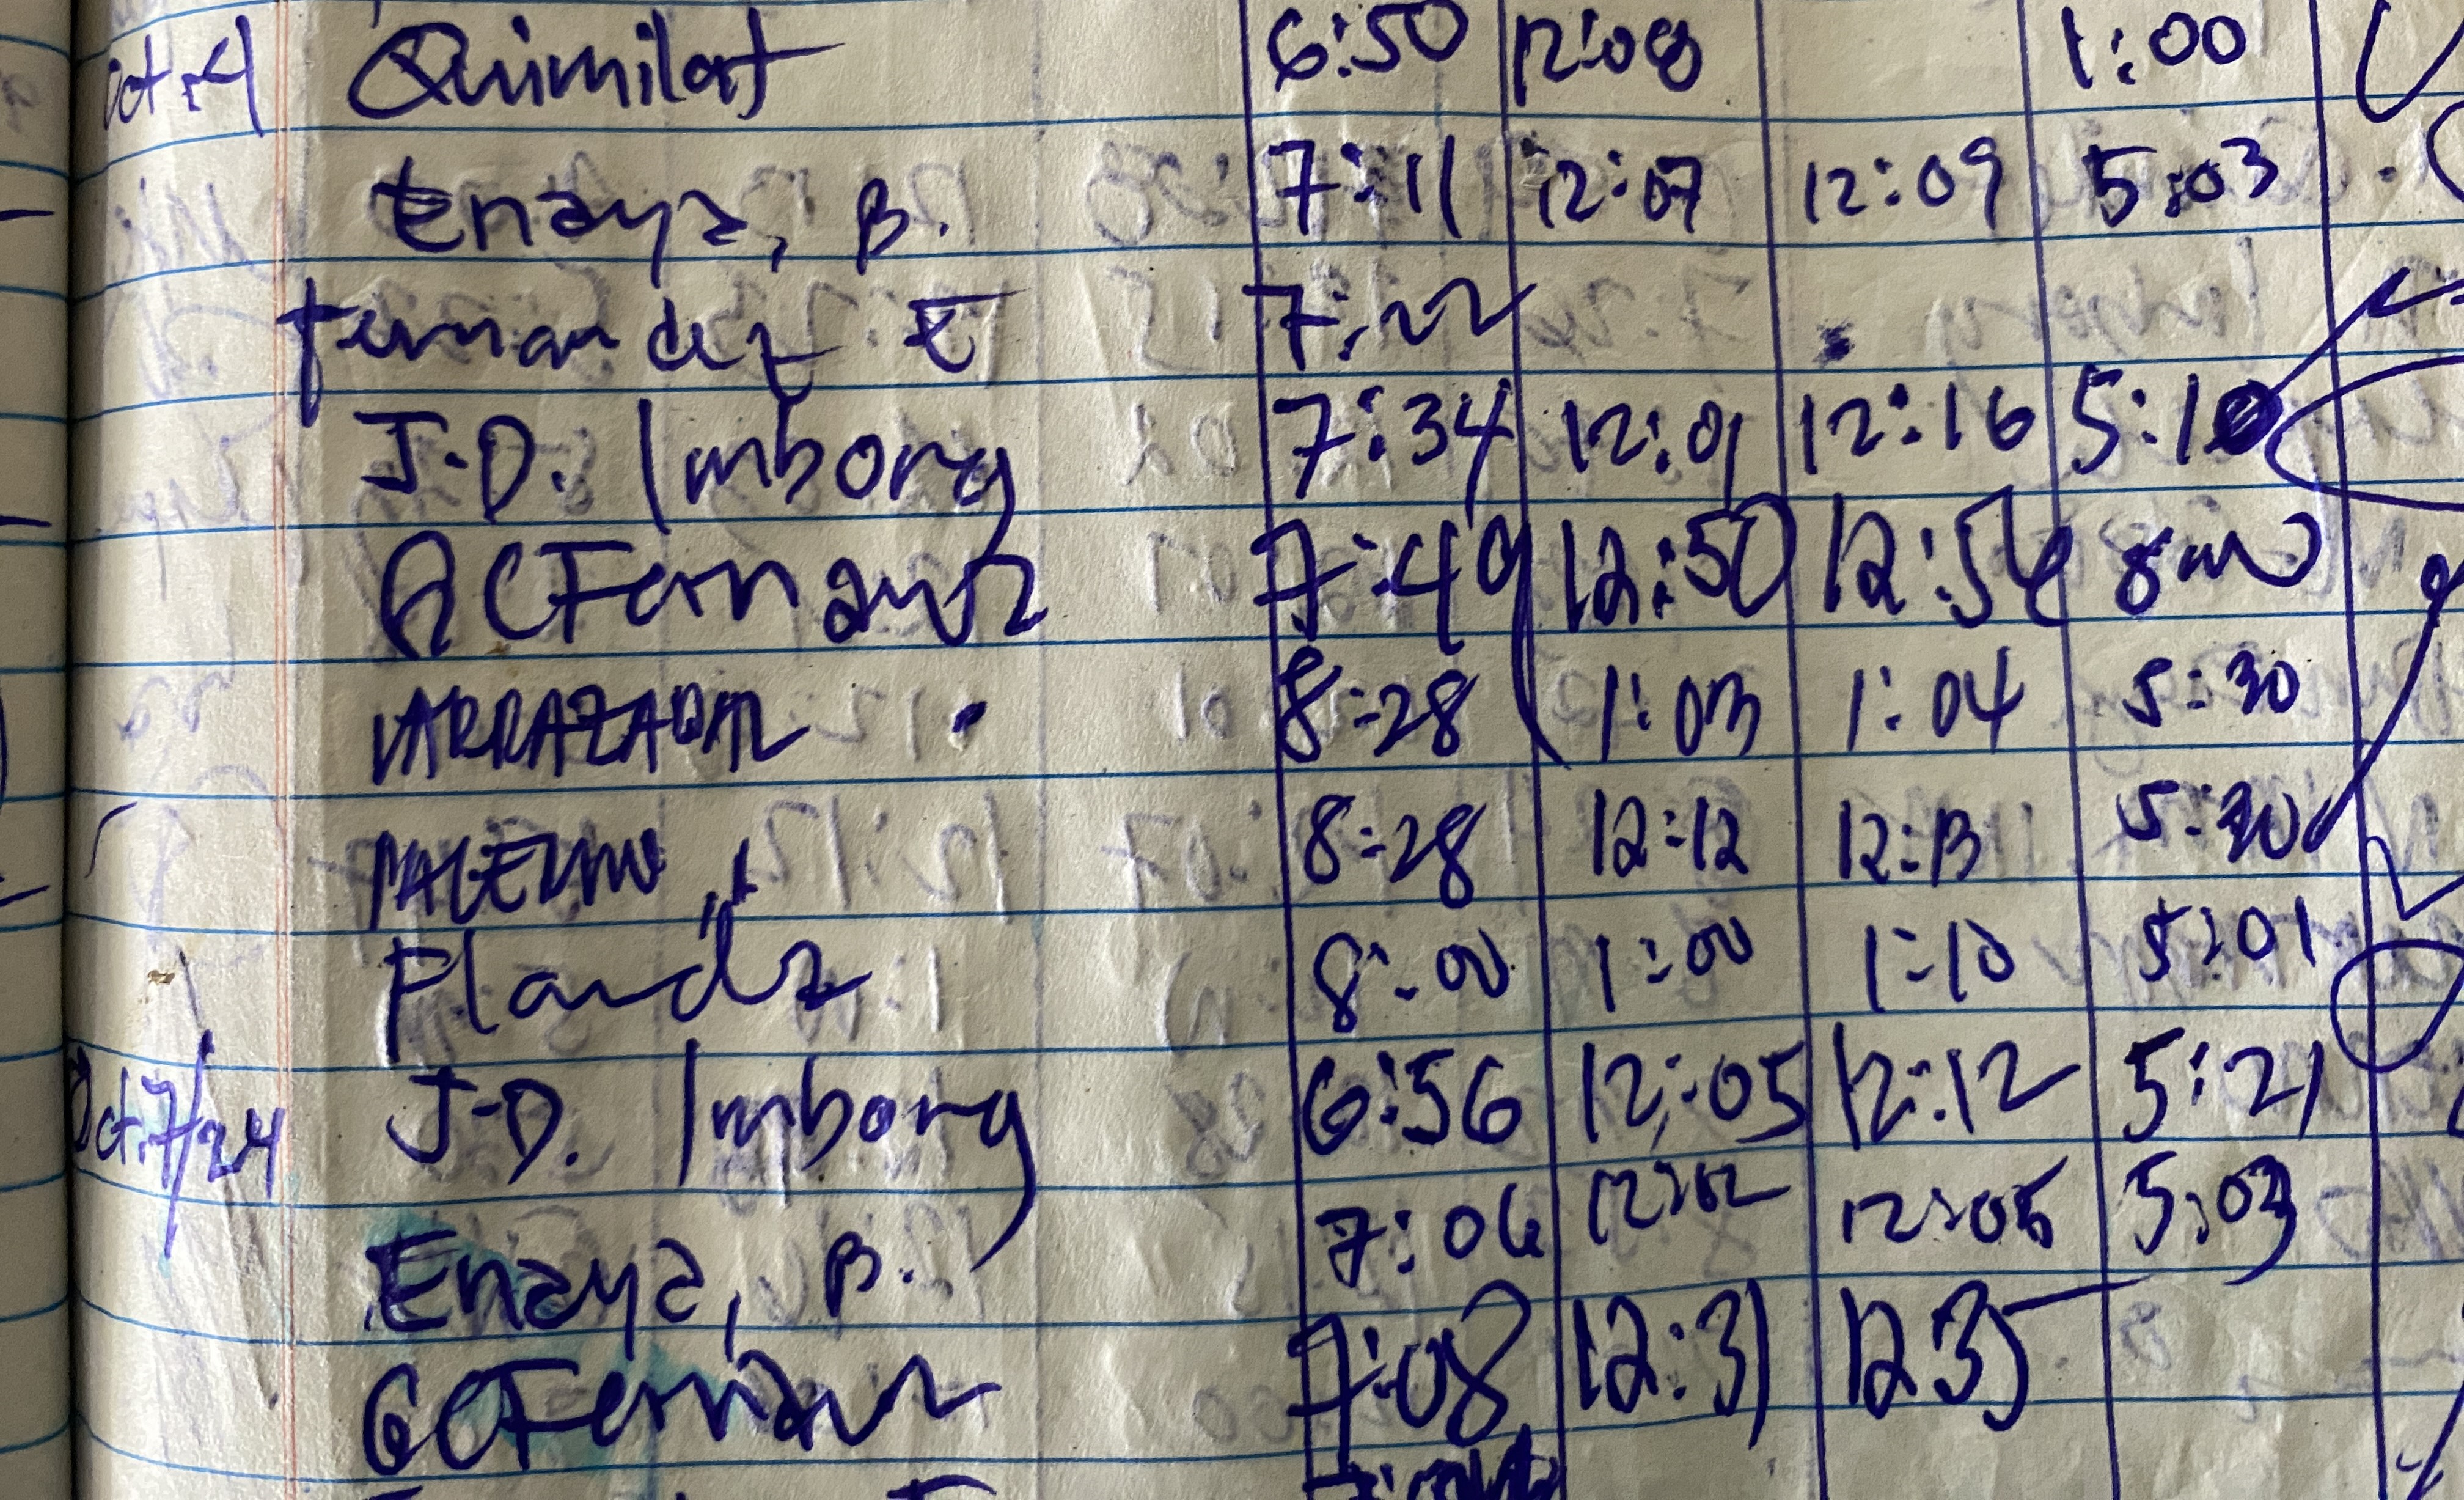 Oct. 4 Quimilat 6:50 12:08 1:00
Enaya, B. 7:11 12:07 12:09 5:03
Fernandez E 7:22
J.D. Imborg 7:34 12:01 12:16 5:10
7:49 12:50 12:54
8:28 1:03 1:04 5:30
8:28 12:12 12:13 5:30
8:00 1:00 1:10 5:01
Oct. 7/24 J.D. Imborg 6:56 12:05 12:12 5:21
Enaya, B. 7:06 12:02 12:05 5:03
7:08 12:31 12 35